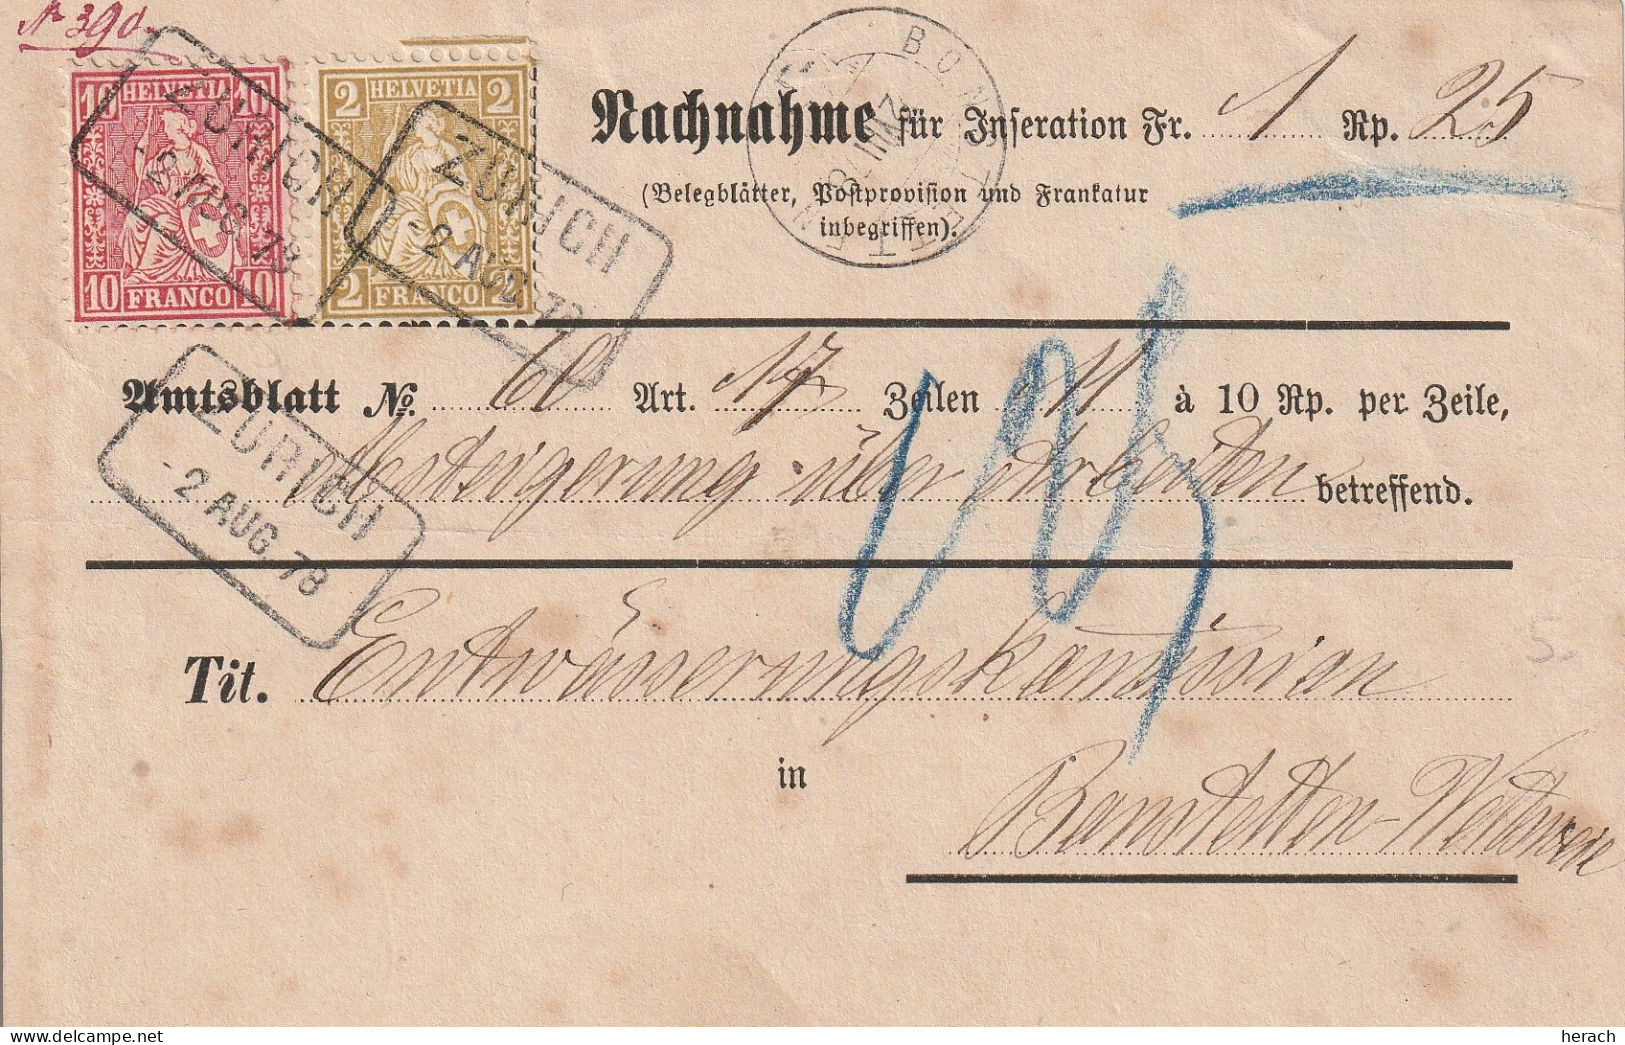 No 390.
10 HELVETIA 10
10 FRANCO 10
2 HELVETIA 2
2 FRANCO 2
ZÜRICH
-2 AUG 78
ZÜRICH
-2 AUG 78
BONSTETTEN
Nachnahme für Inseration Fr. 1 Rp. 25
(Belegblätter, Postprovision und Frankatur
inbegriffen).
Amtsblatt No. 60 Art. 17 Zeilen 11 à 10 Rp. per Zeile,
Absteigerung über Arbeiten betreffend.
ZÜRICH
-2 AUG 78
Tit. Entwässerungskomission
in
Bonstetten-Wettsweil
5.
delcampe.net
herach